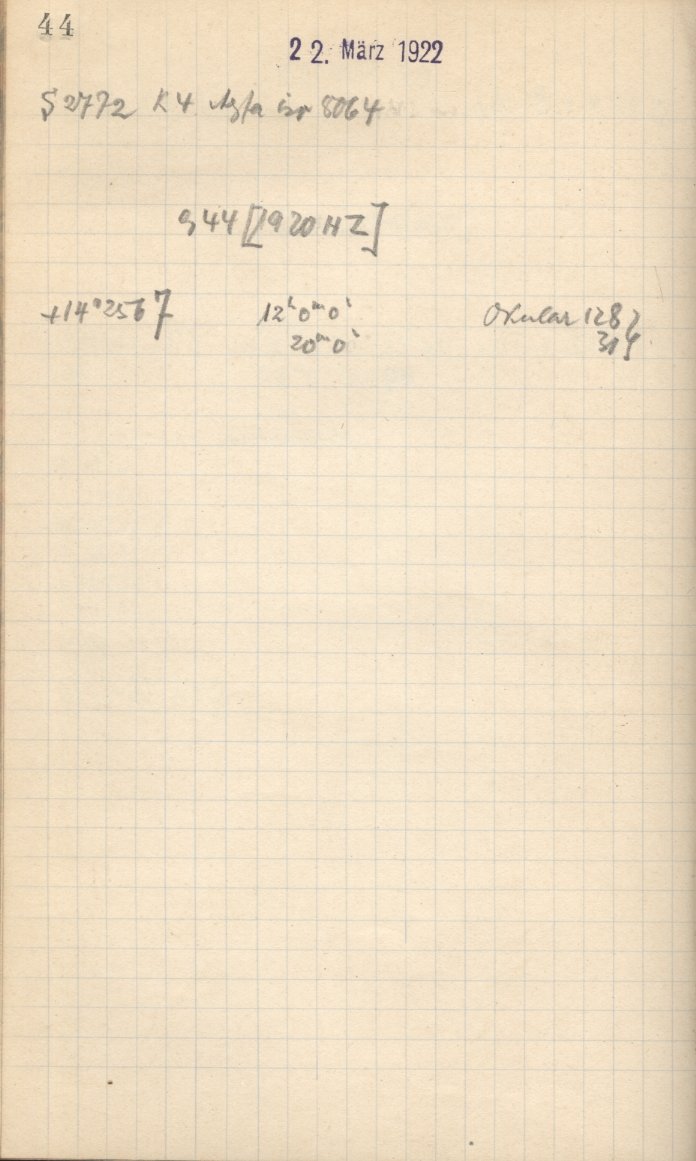 44
22. März 1922
S 2772 K4 Agfa iso 8064
944 [1920 HZ]
+14°2567 12ʰ0ᵐ0ˢ Okular 128
20ᵐ0ˢ